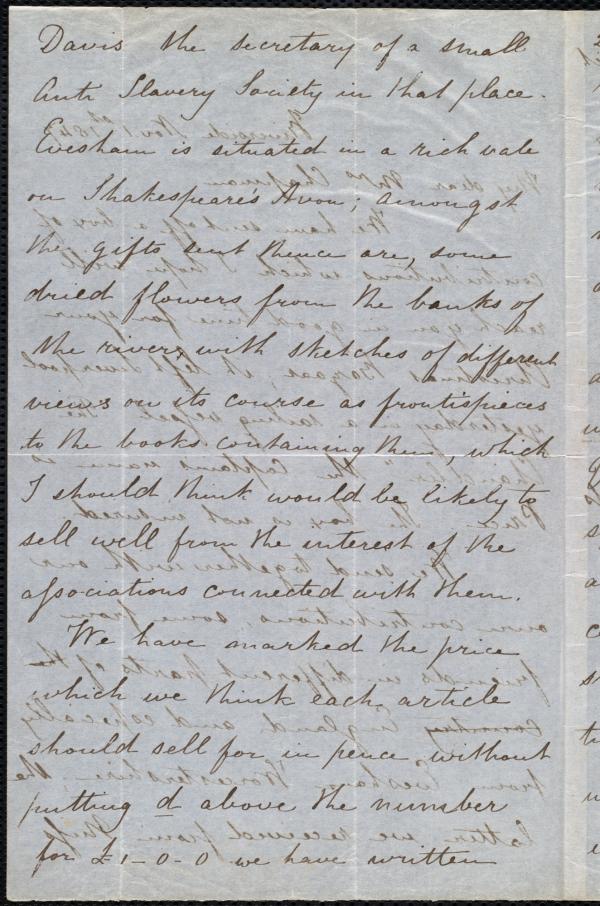 Davis the secretary of a small
Anti Slavery Society in that place.
Evesham is situated in a rich vale
on Shakespeare's Avon; amongst
the gifts sent thence are, some
dried flowers from the banks of
the river, with sketches of different
views on its course as frontispieces
to the books containing them, which
I should think would be likely to
sell well from the interest of the
associations connected with them.
We have marked the price
which we think each article
should sell for in pence, without
putting d above the number
for £1-0-0 we have written